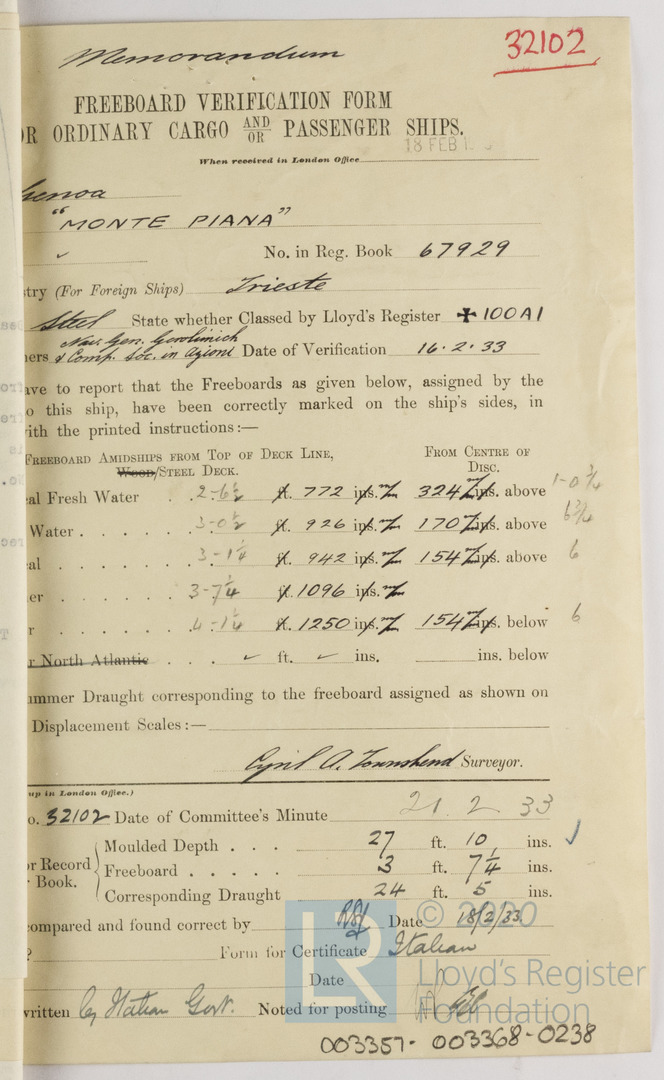 Memorandum
32102
FREEBOARD VERIFICATION FORM
OR ORDINARY CARGO AND/OR PASSENGER SHIPS.
18 FEB 1
When received in London Office
Genoa
"MONTE PIANA"
No. in Reg. Book 67929
stry (For Foreign Ships) Trieste
Steel State whether Classed by Lloyd's Register ✠ 100A1
ners Nav. Gen. Gerolimich & Comp. Soc. in Azioni Date of Verification 16.2.33
ave to report that the Freeboards as given below, assigned by the
o this ship, have been correctly marked on the ship's sides, in
ith the printed instructions:—
FREEBOARD AMIDSHIPS FROM TOP OF DECK LINE, WOOD/STEEL DECK.
FROM CENTRE OF DISC.
al Fresh Water . . 2-6½ ft. 772 ins. m/m 324 m/m ins. above 1-0¾
Water . . . . . . 3-0½ ft. 926 ins. m/m 170 m/m ins. above 6¾
al . . . . . . . 3-1¼ ft. 942 ins. m/m 154 m/m ins. above 6
er . . . . . . . 3-7¼ ft. 1096 ins. m/m
r . . . . . . . 4-1¼ ft. 1250 ins. m/m 154 m/m ins. below 6
r North Atlantic . . . ✓ ft. ✓ ins. ins. below
ummer Draught corresponding to the freeboard assigned as shown on
Displacement Scales:—
Cyril A. Townshend Surveyor.
up in London Office.)
o. 32102 Date of Committee's Minute 21.2.33
Moulded Depth . . . 27 ft. 10 ins. ✓
or Record
r Book.
Freeboard . . . . . 3 ft. 7¼ ins.
Corresponding Draught 24 ft. 5 ins.
compared and found correct by Date 18/2/33
? Form for Certificate Italian
Date
written by Italian Govt. Noted for posting
© 2020
Lloyd's Register
Foundation
LR
003357-003368-0238